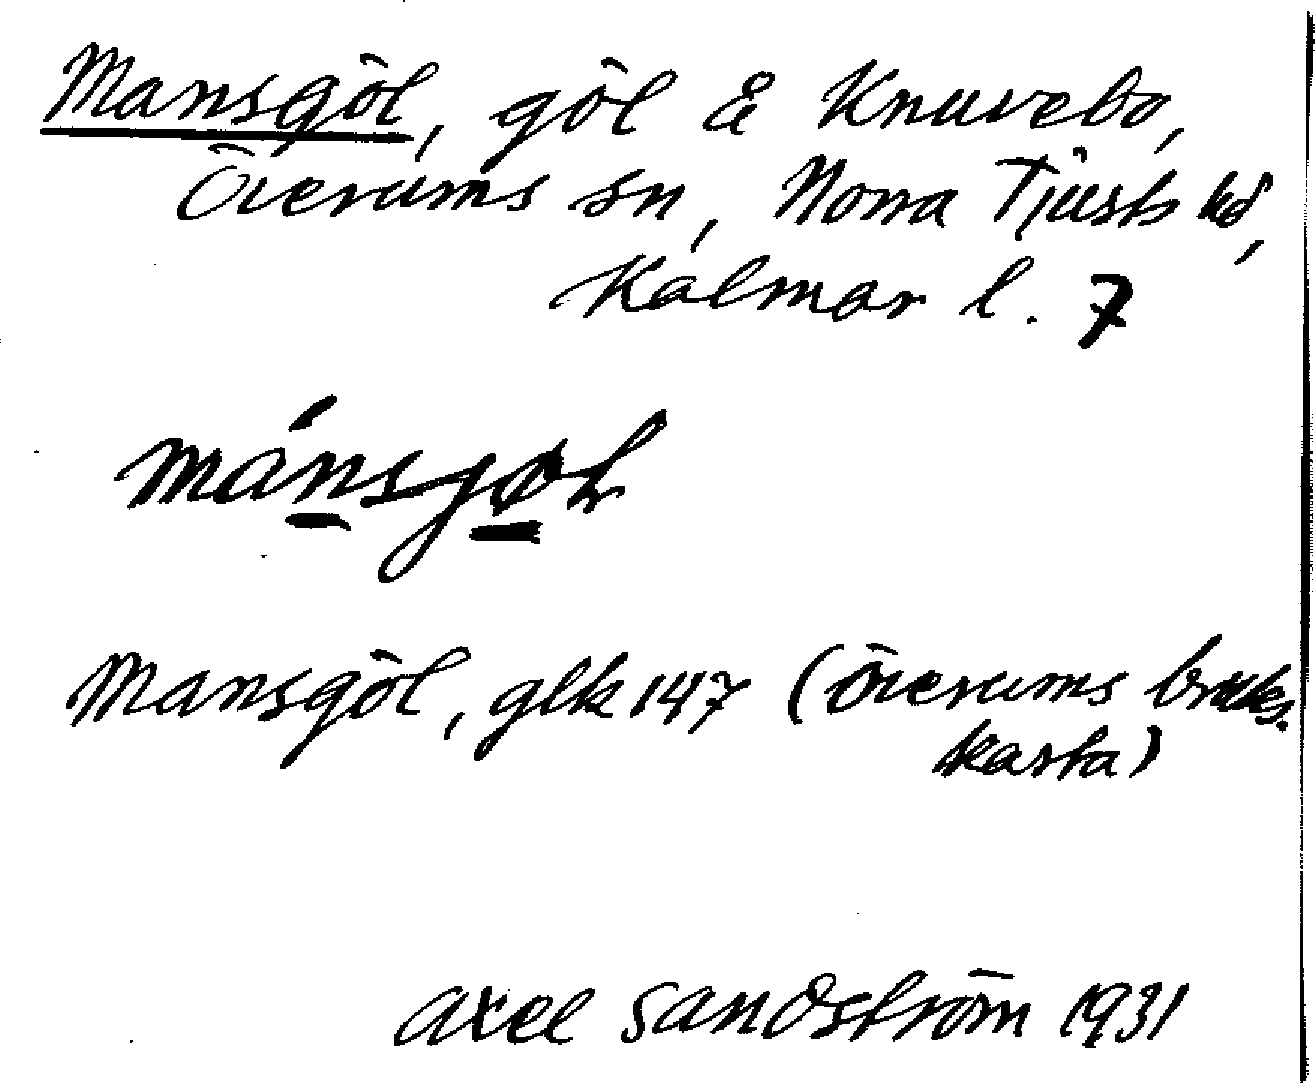 Mansgöl, göl å Knuvebo,
Överums sn, Norra Tjusts hd,
Kalmar l. 7
mánsjøl
Mansgöl, glk 147 (Överums bruks
karta)
Axel Sandström 1931